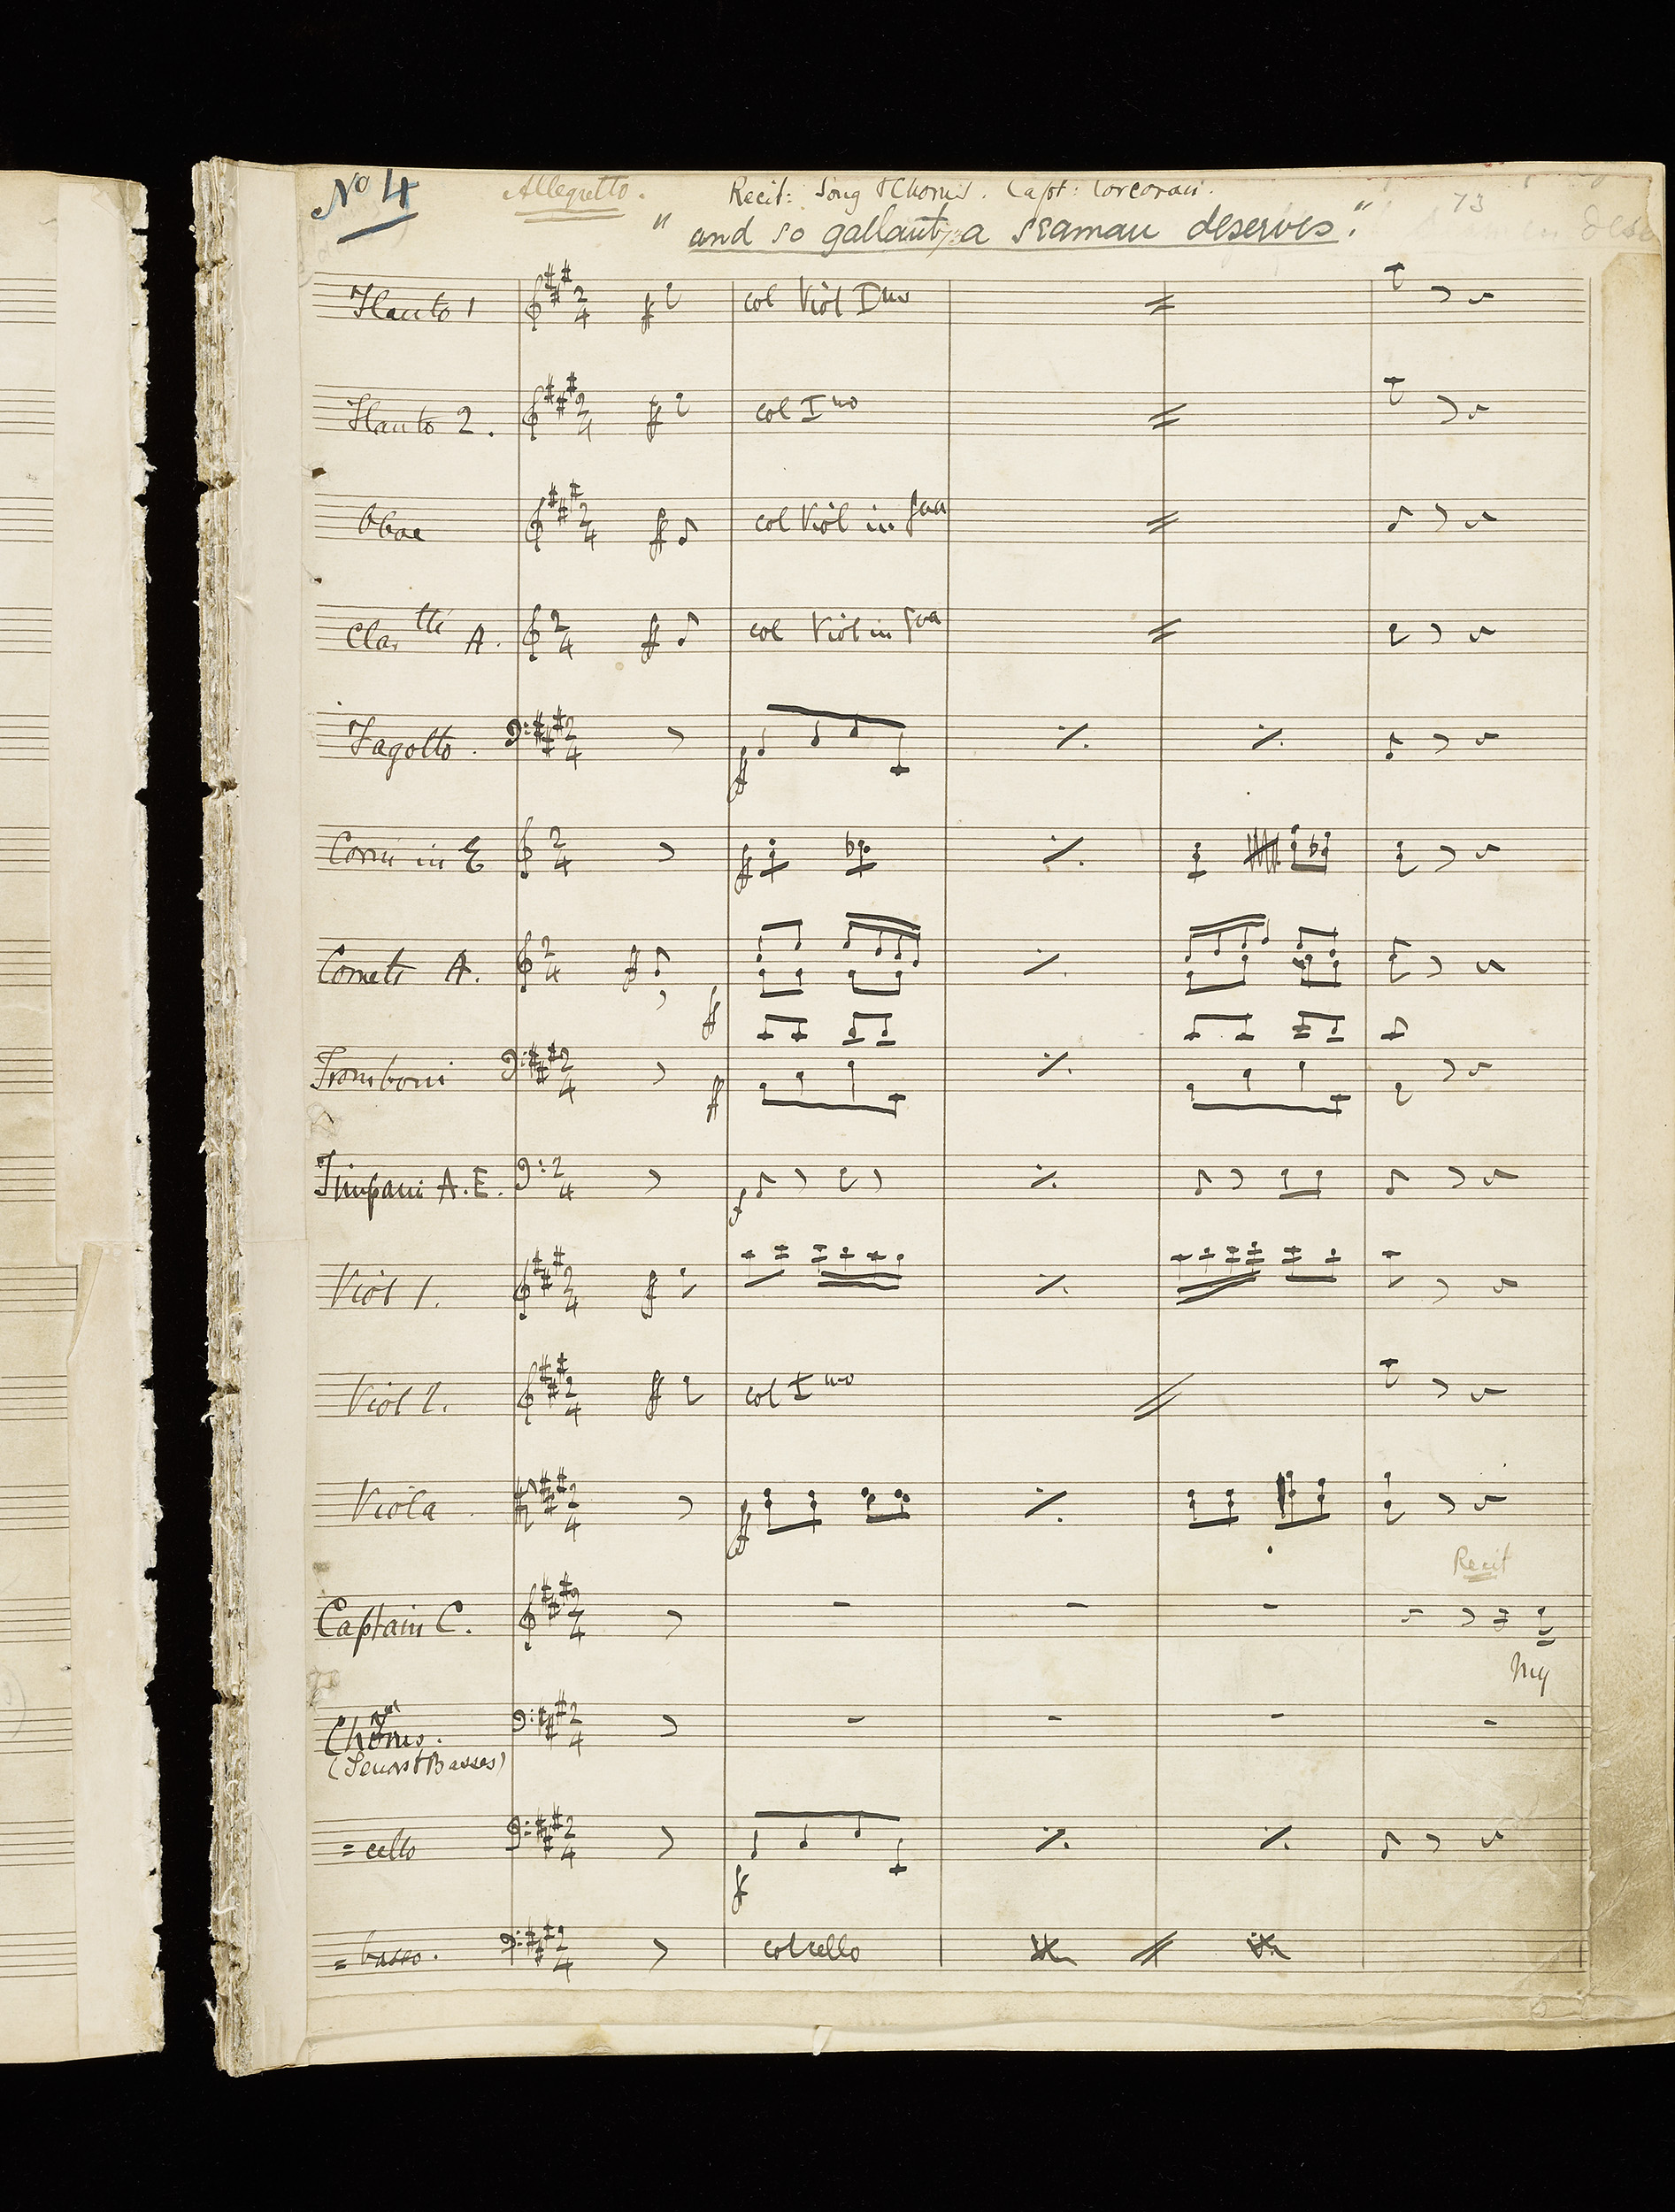 No 4 Allegretto. Recit: Song & Chorus. Capt: Corcoran.
73
" and so gallant, a seaman deserves."
Flauto 1 2 4 ff col Viol Imo
Flauto 2. 2 4 ff col Imo
Oboe 2 4 ff col Viol in 8va
Clartti A. 2 4 ff col Viol in 8va
Fagotto. 2 4 ff
Corni in E 2 4 ff
Cornets A. 2 4 ff
ff
Tromboni 2 4 ff
Timpani A.E. 2 4 f
Viol 1. 2 4 ff
Viol 2. 2 4 ff col Imo
Viola 2 4 ff
Recit
Captain C. 2 4
My
Chorus. 2 4
(Tenors & Basses)
= cello 2 4 ff
= basso. 2 4 col cello